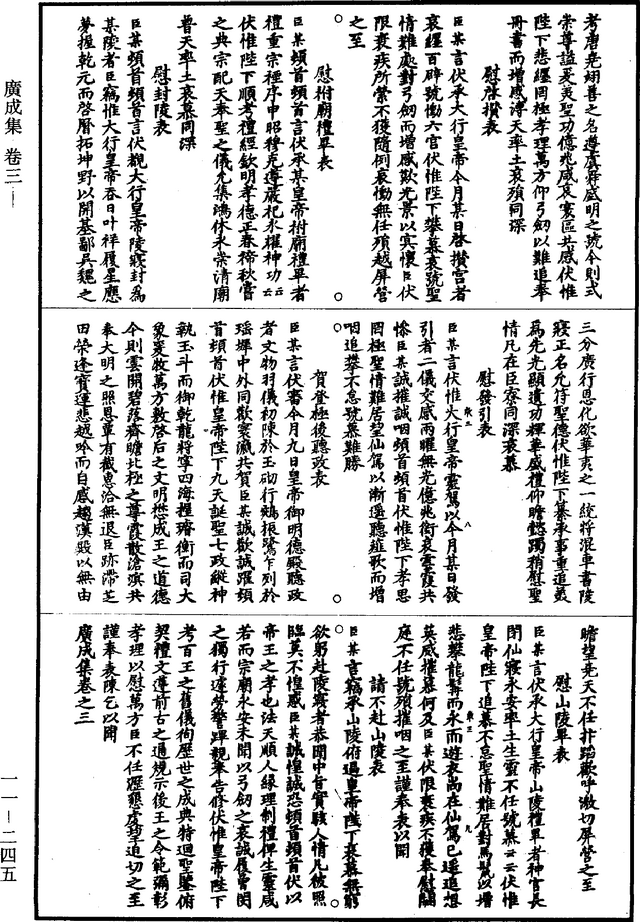 廣成集　卷三
一一─二四五
考唐堯翊善之名遵虞舜盛明之號今則式
崇尊謚爰夷聖功億兆咸哀寰區共感伏惟
陛下悲纏罔極孝理萬方仰弓劒以難追奉
冊書而增感溥天率土哀殞同深
慰啓攢表
臣某言伏承大行皇帝今月某日啓攢宮者
哀纏百辟號慟六宮伏惟陛下攀慕哀號聖
情難處對弓劒而增感歎光景以寘懷臣伏
限衰疾所縈不獲隨例哀慟無任殞越屏營
之至
慰祔廟禮畢表
臣某頓首頓首言伏承某皇帝祔廟禮畢者
禮重宗祧序申昭穆克遵嚴祀永耀神功云云
伏惟陛下順考禮經欽明孝德正春禘秋嘗
之典宗配天奉聖之儀允集鴻休永榮清廟
普天率土哀慕同深
慰封陵表
臣某頓首頓首言伏覩大行皇帝陵寢封爲
某陵者臣竊惟大行皇帝吞日叶祥履星應
夢握乾元而啓曆拓坤野以開基鄙吳魏之
三分廣行恩化欲華夷之一統將混車書陵
寢正名允符聖德伏惟陛下纂承事重追羨
爲先光顯遺功輝華盛禮仰瞻懿躅稍慰聖
情凡在臣寮同深哀慕
慰發引表
臣某言伏惟大行皇帝靈駕以今月某日發
引者二儀交感兩曜無光億兆銜哀雲霞共
慘臣某誠摧誠咽頓首頓首伏惟陛下孝思
罔極聖情難居望仙駕以漸遥聽薤歌而增
咽追攀不怠號慕難勝
賀登極後聽政表
臣某言伏審今月九日皇帝御明德殿聽政
者文物羽儀初陳於玉砌行鵷振鷺乍列於
瑤墀中外同歡寰瀛共賀臣某誠歡誠躍頓
首頓首伏惟皇帝陛下九天誕聖七政縱神
執玉斗而御乾龍將寧四海握璿衡而司大
象爰牧萬方敷啓后之文明懋成王之道德
今則雲開碧落齊瞻北極之尊霞散滄溟共
奉大明之照恩覃有截惠洽無退臣跡滯芝
田榮逢寶運悲越吟而自感趨漢殿以無由
瞻望堯天不任抃蹈歡呼激切屏營之至
慰山陵畢表
臣某言伏承大行皇帝山陵禮畢者神官長
閉仙寢永安率土生靈不任號慕云云伏惟
皇帝陛下追慕不怠聖情難居對馬鬛以增
悲攀龍髯而永而遊衣尚在仙駕已遥追想
英威摧慕何及臣某伏限衰疾不獲奉慰闕
庭不任號殞摧咽之至謹奉表以聞
請不赴山陵表
臣某言竊承山陵俯逼皇帝陛下哀慕無窮
欲躬赴陵寢者恭聞中旨實駭人情凡被照
臨莫不惶惑臣某誠惶誠恐頓首頓首伏以
帝王之孝也法天順人緣理制禮俾生靈咸
若而宗廟永安未聞以弓劒之哀誠履曾閔
之獨行遽勞警蹕親奉告修伏惟皇帝陛下
考百王之舊儀徇歷世之成典特迴聖鑒俯
契禮文遵前古之通規示後王之令範彌彰
孝理以慰萬方臣不任瀝懇虔望追切之至
謹奉表陳乞以聞
廣成集卷之三